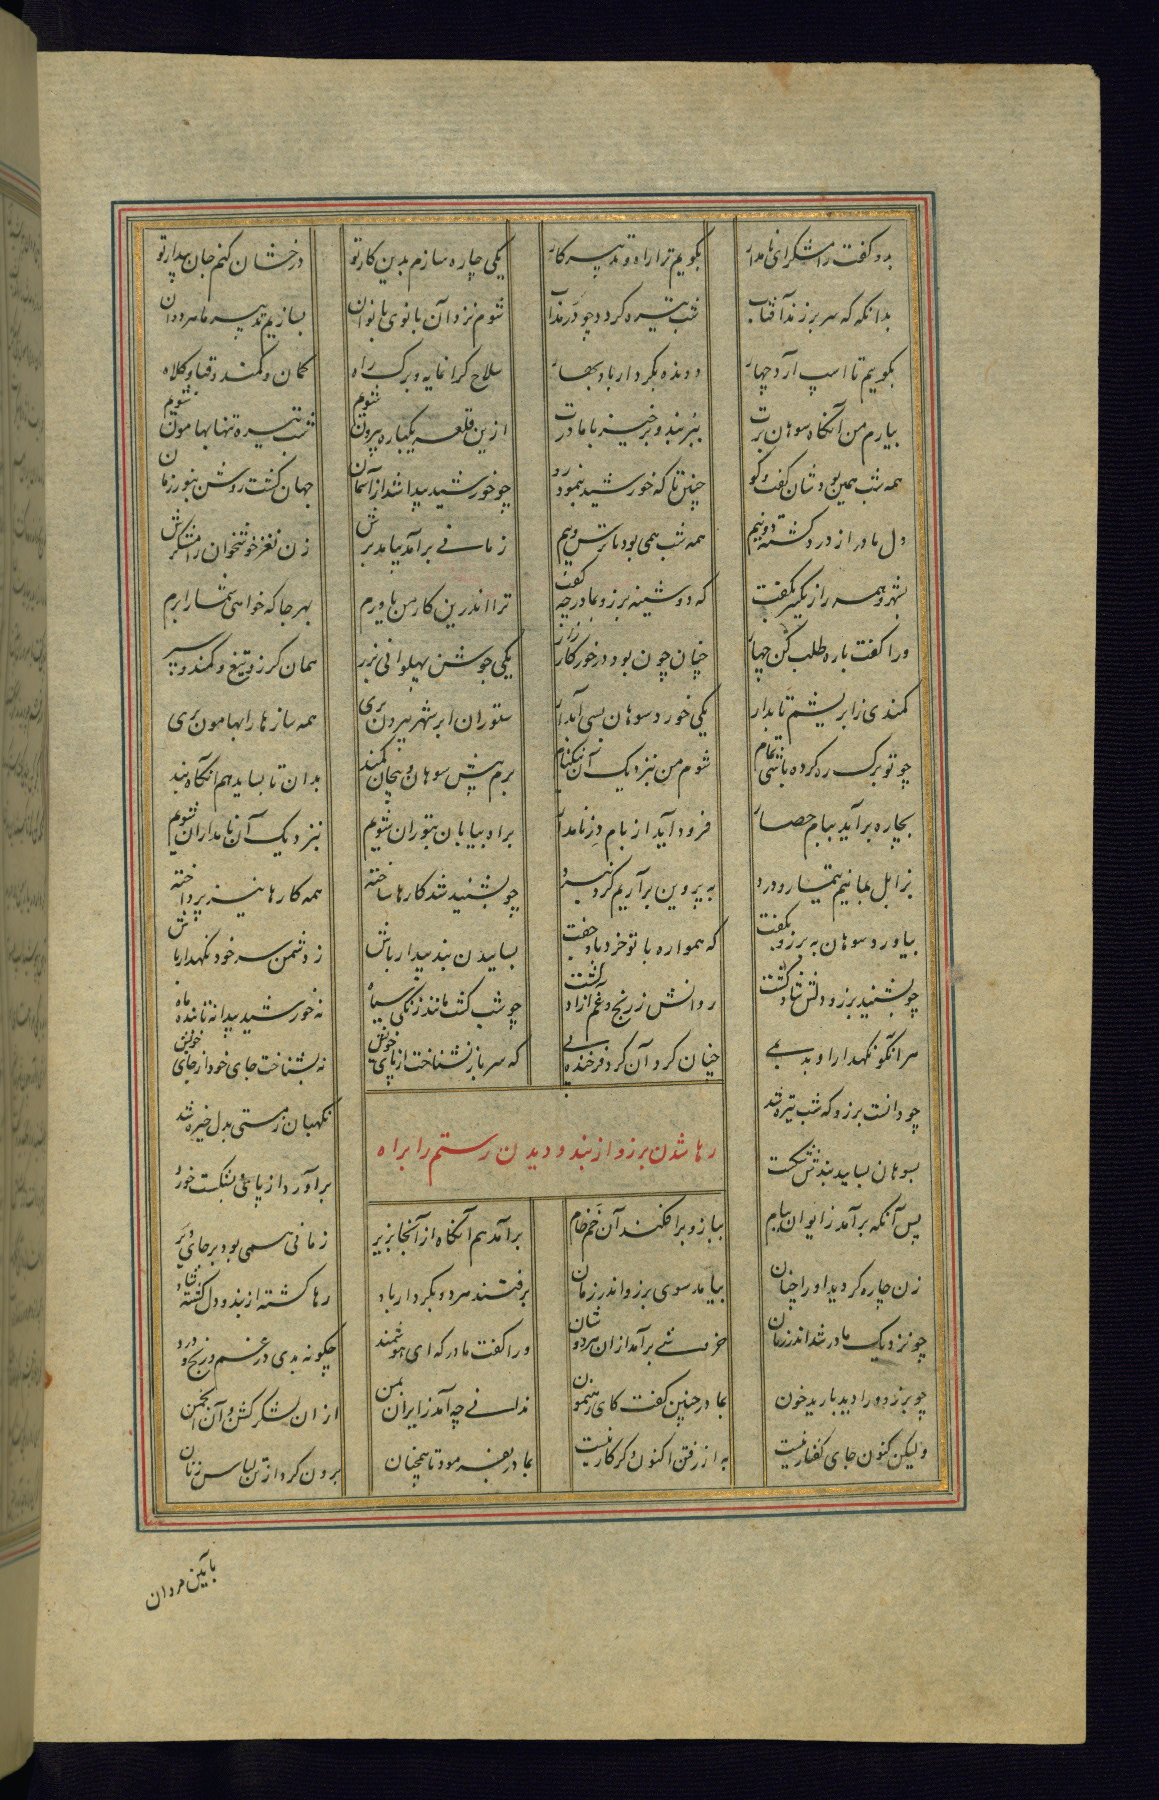 بدو گفت رامشگر ای نامدار بگویم ترا راه و تدبیر کار یکی چاره سازم بدین کار تو درخشان کنم جان بیدار تو
بدانگه که سر برزند آفتاب شب تیره گردد چو در خواب شوم نزد آن بانوی بانوان بسازیم تدبیر ما هر دوان
بگویم تا اسپ آرد چهار دونده بکردار باد بهار سلاح گرانمایه و برگ راه کمان و کمند و قبا و کلاه
بیارم من آنگاه سوهان برت ببر بند و برخیز با مادرت ازین قلعه یکباره بیرون شویم شب تیره تنها بهامون شویم
همه شب همین بود شان گفت و گو چنین تا که خورشید بنمود رو چو خورشید پیدا شد از آسمان جهان گشت روشن بنور زمان
دل مادر از درد گشته دو نیم همه شب همی بود با ترس و بیم زمانی برآمد بیامد برش زن نغز خوشخوان رامشگرش
بشهرو همه راز یکسر بگفت که دوشینه برزو بمادر چه گفت ترا اندرین کار من یاورم بهر جا که خواهی شما را برم
ورا گفت باره طلب کن چهار چنان چون بود در خور کارزار یکی جوشن پهلوانی بزر همان گرز و تیغ و کمند و سپر
کمندی ز ابریشم تابدار یکی خورد سوهان بسی آبدار ستوران ابر شهر بیرون بری همه سازها را بهامون بری
چو تو برگ ره کرده باشی تمام شوم من بنزدیک آن نیکنام برم پیش سوهان و پیچان کمند بدان تا بساید هم آنگاه بند
بچاره برآید ببام حصار فرود آید از بام دز نامدار براه بیابان بتوران شویم بنزدیک آن نامداران شویم
بزابل بمانیم تیمار و درد به پروین برآریم گرد نبرد چو بشنید شد کارها ساخته همه کارها نیز پرداخته
بیاورد سوهان به برزو بگفت که همواره با تو خرد باد جفت بساییدن بند بیدار باش ز دشمن سر خود نگهدار باش
چو بشنید برزو دلش شاد گشت روانش ز رنج و غم آزاد گشت چو شب گشت مانند زنگی سیاه نه خورشید پیدا نه تابنده ماه
مر آنگو نگهدار او بد بسی چنان کرد آن گرد فرخنده پی که سر باز نشناخت از پای خویش نه بشناخت جای خود از جای خویش
چو دانست برزو که شب تیره شد نگهبان ز مستی بدل خیره شد
رها شدن برزو از بند و دیدن رستم را براه
بسوهان بسایید بندش شکست برآورد از پای و بشکست خورد
پس آنگه برآمد ز ایوان ببام ببازو برافکند آن خم خام برآمد هم آنگاه از آنجا بزیر زمانی همی بود بر جای دیر
زن چاره گر دید او را چنان بیامد سوی برزو اندر زمان برفتند هر دو بکردار باد رها گشته از بند و دل گشته شاد
چو نزدیک مادر شد اندر زمان خروشی برآمد از آن هر دوشان ورا گفت مادر که ای هوشمند چگونه بدی در غم و رنج و درد
چو برزو ورا دید بارید خون بمادر چنین گفت کای رهنمون ندانی چه آمد ز ایران بمن از ان لشکرکش و آن انجمن
ولیکن کنون جای گفتار نیست به از رفتن اکنون دگر کار نیست بمادر بفرمود تا همچنان برون کرد از تن لباس زنان
بآیین مردان